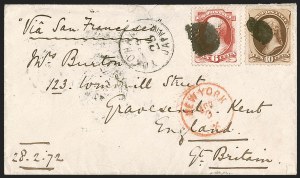 "Via San Francisco"
Mrs Burton
123. Windmill Street
Gravesend. Kent
England
Gt. Britain
28.2.72
NEW YORK
JAPAN